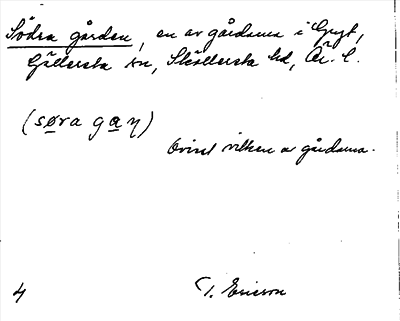 Södra gården, en av gårdarna i Gryt,
Gällersta sn, Sköllersta hd, Ör. l.
(søra gaɳ)
Ovisst vilken av gårdarna.
4 T. Ericson